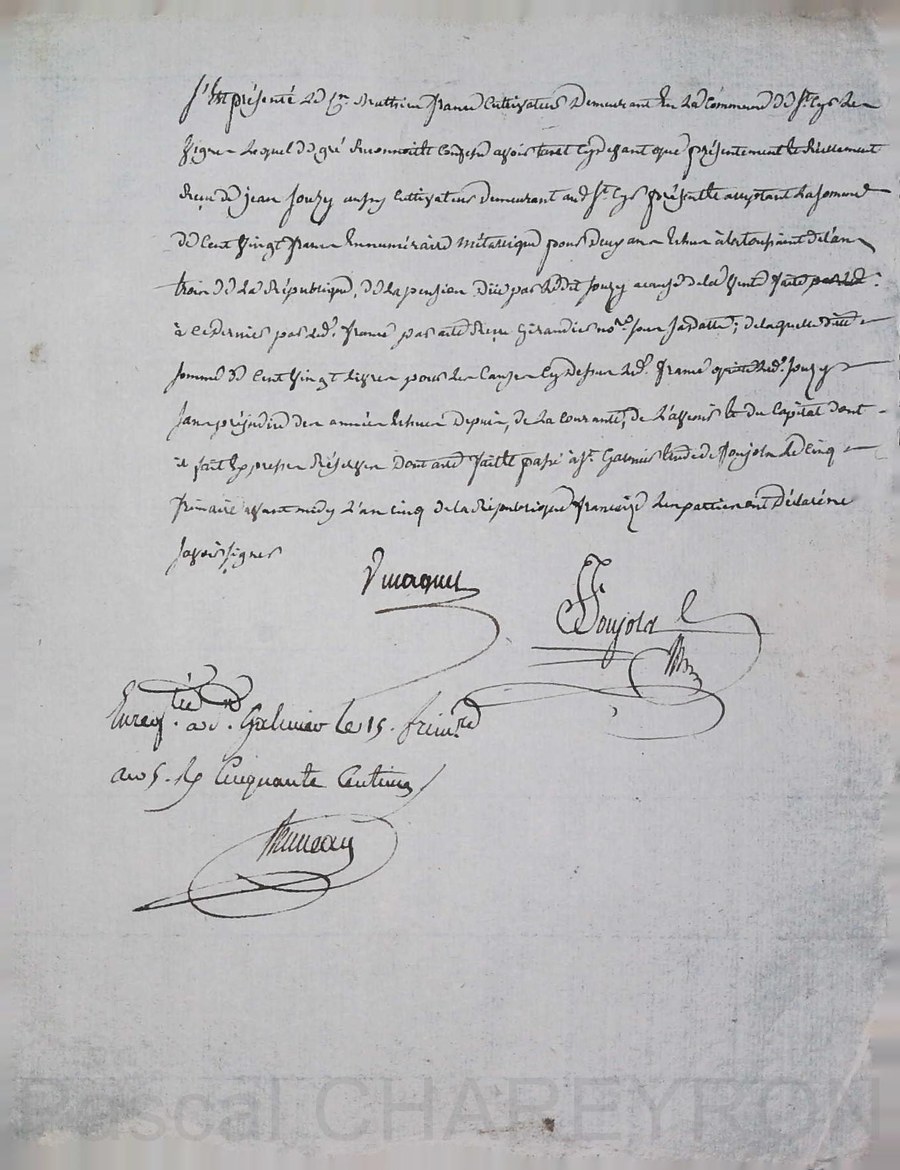 S'est présenté le Cn. Mathieu France Cultivateur Demeurant En La Commune de St. Cyr Les
Vignes Lequel de gré Reconnoit et Confesse avoir tant Cydevant que présentement et Réellement
Reçu de jean Jouzy aussy Cultivateur demeurant aud. St. Cyr présent et acceptant La somme
de Cent Vingt francs En numéraire métallique pour Deux ans Echus à la toussaint de l'an
trois de La République, de La pension Düe par Ledit Jouzy a cause de la Vente faite
à ce Dernier par led. France par acte Reçu Girandier nore. ; de laquelle ditte
somme de Cent Vingt livres pour les Causes Cy Dessus led. France quitte led. Jouzy
Sans préjudice des années Echues depuis, de La Courante, de et du Capital dont
il fait Expresses Réserves Dont acte fait et passé à St. Galmier Etude de Poujola Le Cinq
frimaire avant midy L'an Cinq de la République française Les parties ont Déclaré ne
savoir signer
Poujola
Enregtré. a St. Galmier le 15. frim.re
an 5. Rç Cinquante Centimes
Pascal CHAREYRON